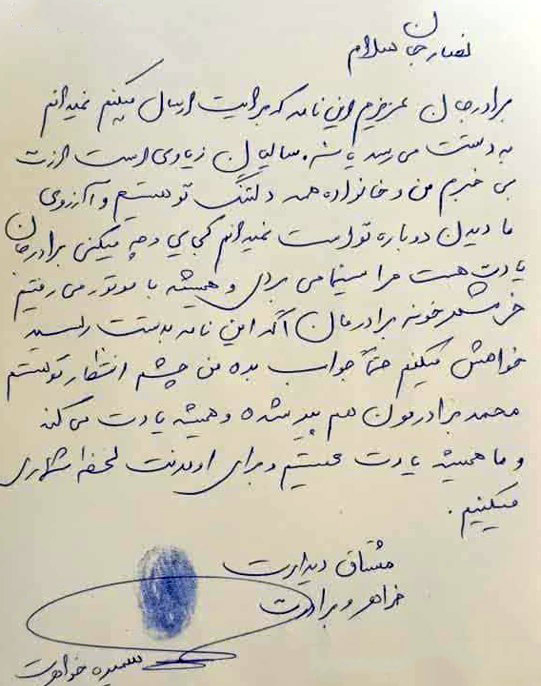 نصار جان سلام
برادر جان عزیزم این نامه که برایت ارسال میکنم نمیدانم
به دستت می رسد یا نه. سالیان زیادی است ازت
بی خبرم من و خانواده همه دلتنگ تو هستیم و آرزوی
ما دیدن دوباره تو است نمیدانم کجایی و چه میکنی برادر جان
یادت هست مرا سینما می بردی و همیشه با موتور می رفتیم
خرمشهر خونه برادرمان اگه این نامه بدستت رسید
خواهش میکنم حتماً جواب بده من چشم انتظار تو هستم
محمد برادرمون هم پیر شده و همیشه یادت می کند
و ما همیشه یادت هستیم و برای اومدنت لحظه شماری
میکنیم.
مشتاق دیدارت
خواهر و برادرت
خواهرت